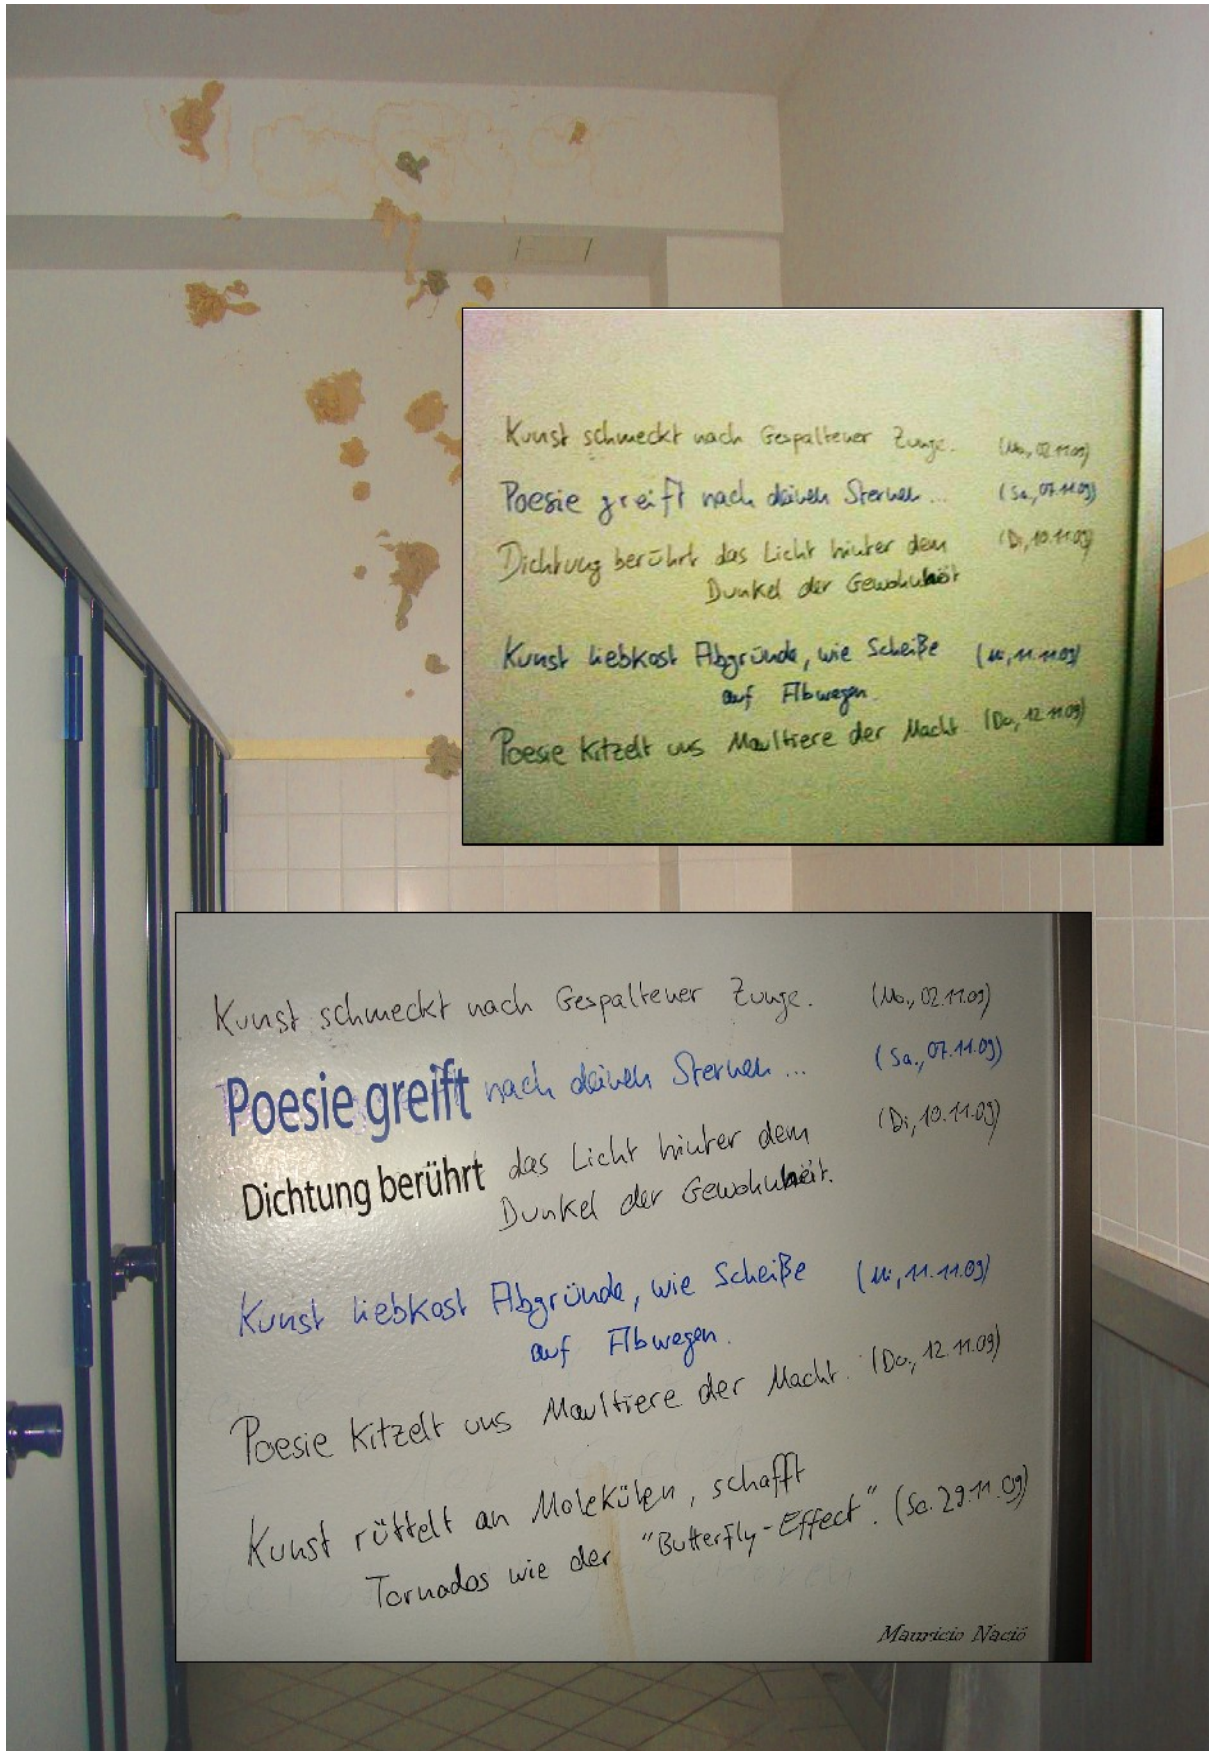 Kunst schmeckt nach Gespaltener Zunge. (Mo., 02.11.09)
Poesie greift nach deinen Sternen... (Sa., 07.11.09)
Dichtung berührt das Licht hinter dem (Di, 10.11.09)
Dunkel der Gewohnheit
Kunst liebkost Abgründe, wie Scheiße (Mi, 11.11.09)
auf Abwegen.
Poesie kitzelt uns Maultiere der Macht. (Do, 12.11.09)
Kunst schmeckt nach Gespaltener Zunge. (Mo., 02.11.09)
Poesie greift nach deinen Sternen... (Sa., 07.11.09)
Dichtung berührt das Licht hinter dem (Di, 10.11.09)
Dunkel der Gewohnheit.
Kunst liebkost Abgründe, wie Scheiße (Mi, 11.11.09)
auf Abwegen.
Poesie kitzelt uns Maultiere der Macht. (Do., 12.11.09)
Kunst rüttelt an Molekülen, schafft
Tornados wie der "Butterfly-Effect". (So. 29.11.09)
Mauricio Nació